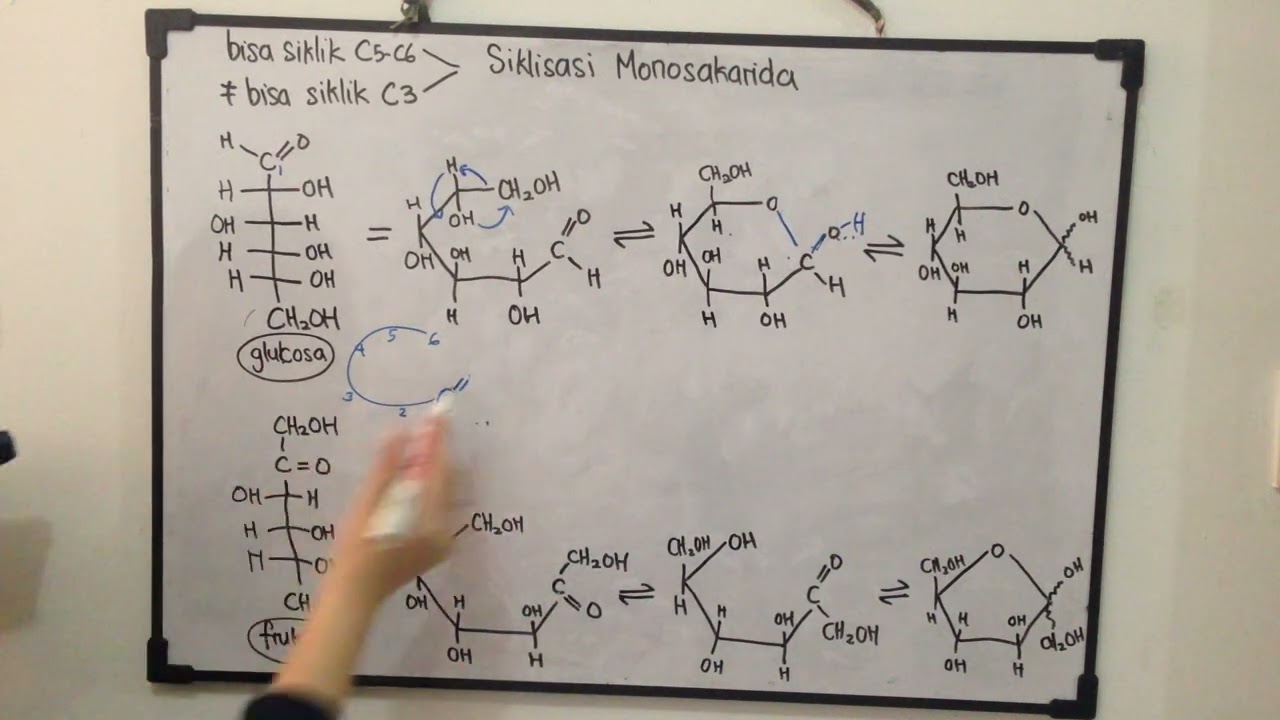 bisa siklik C5-C6
≠ bisa siklik C3
Siklisasi Monosakarida
H C O
1
H OH
OH H
H OH
H OH
CH₂OH
glukosa
=
H
CH₂OH
H OH
OH OH H C O
H
H OH
⇌
CH₂OH
O
H H
OH OH H C O-H
H
H OH
⇌
CH₂OH
O OH
H H
OH OH H H
H OH
4 5 6
3 2
CH₂OH
C=O
OH H
H OH
H
CH₂OH
OH H OH C O
CH₂OH
OH H
⇌
CH₂OH OH
H H OH C O
CH₂OH
OH H
⇌
CH₂OH O OH
H H OH CH₂OH
OH H